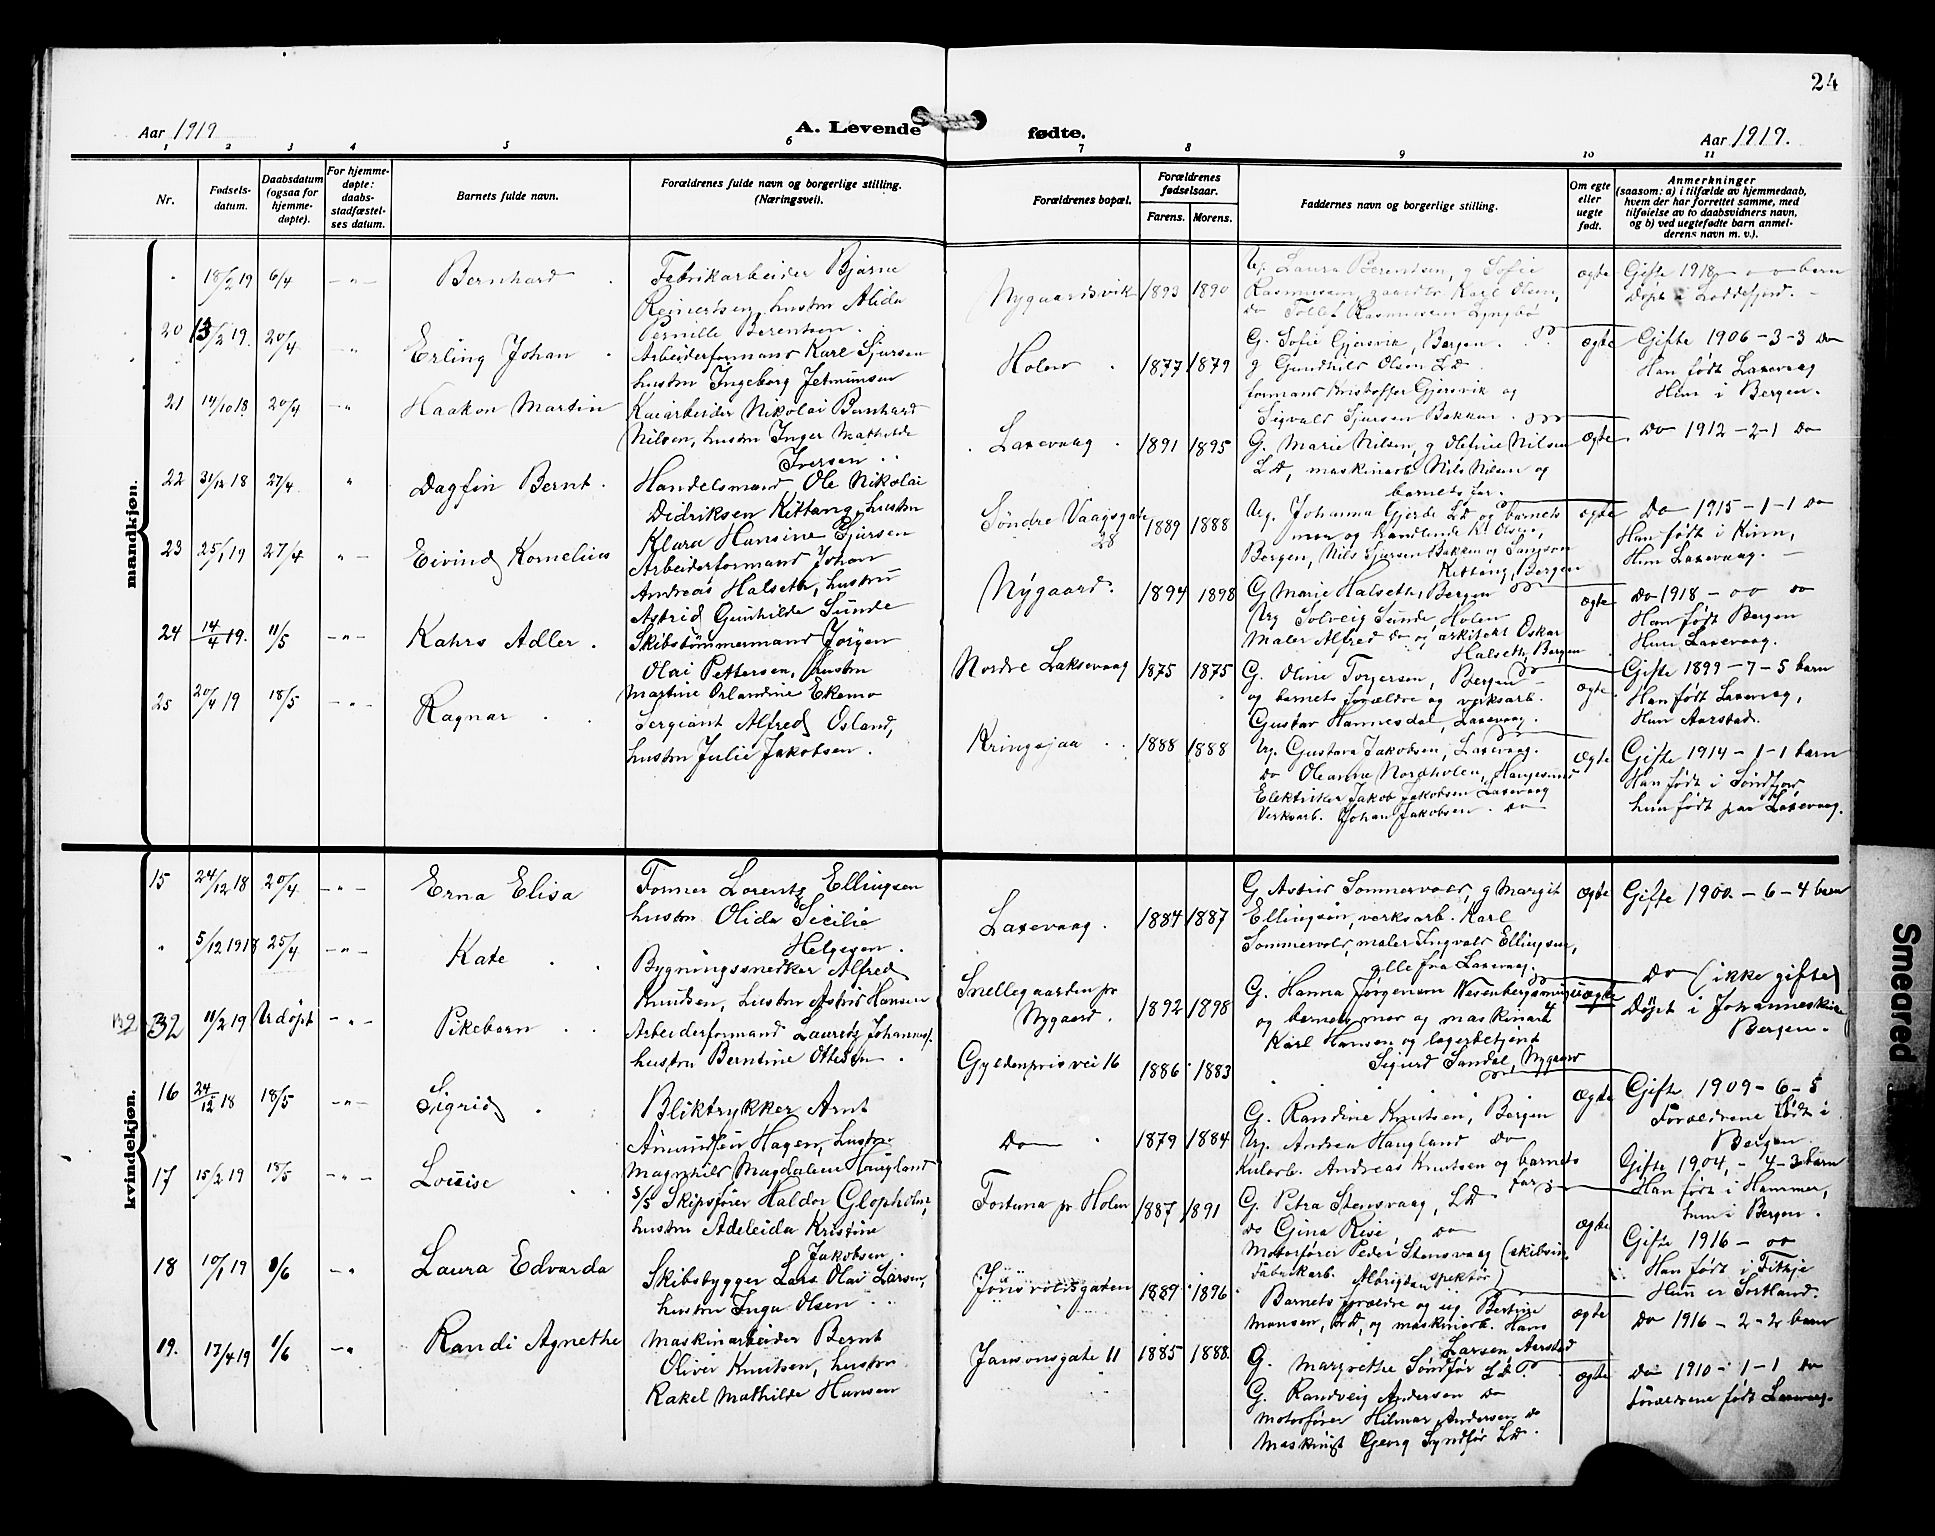 24
Aar 1919
A. Levende
fødte.
Aar 1919.
1 2 3 4 5 6 7 8 9 10 11
Nr.
Fødsels-
datum.
Daabsdatum
(ogsaa for
hjemme-
døpte).
For hjemme-
døpte:
daabs-
stadfæstel-
ses datum.
Barnets fulde navn.
Forældrenes fulde navn og borgerlige stilling.
(Næringsvei).
Forældrenes bopæl.
Forældrenes
fødselsaar.
Farens. Morens.
Faddernes navn og borgerlige stilling.
Om egte
eller
uegte
født.
Anmerkninger
(saasom: a) i tilfælde av hjemmedaab,
hvem der har forrettet samme, med
tilføielse av to daabsvidners navn,
og b) ved uegtefødte barn anmel-
derens navn m. v.).
mandkjøn.
" 18/2 19 6/4 – " – Bernhard
Fabrikarbeider Bjarne
Reinertsen, hustru Alida
Pernille Berentsen.
Nygaardsvik 1893 1890
Ug. Laura Berentsen, g Sofie
Rasmussen, gaardbr Karl Olsen,
do Tollef Rasmussen Lyngbø
ægte
Gifte 1918 – o o barn
Døpt i Loddefjord. –
20 13/2 19. 20/4 " Erling Johan
Arbeiderformand Karl Sjursen
hustru Ingeborg Jetmundsen
Holen 1877 1879
G. Sofie Gjersvik, Bergen.
g Gundhild Olsen Ld.
formand Kristoffer Gjersvik og
Sigvald Sjursen Bakken.
ægte
Gifte 1906 – 3 – 3 do
Han født Laxevaag
Hun i Bergen.
21 14/10 18 20/4 – " Haakon Martin
Kaiarbeider Nikolai Bernhard
Nilsen, hustru Inger Mathilde
Iversen
Laxevaag 1891 1895
G. Marie Nilsen, g Oletine Nilsen
Ld, maskinarb Nils Nilsen og
barnets far.
ægte
Do 1912 – 2 – 1 do
22 31/12 18 27/4 " Dagfin Bernt.
Handelsmand Ole Nikolai
Didriksen Kittang, hustru
Klara Hansine Sjursen
Søndre Vaagsgate
28
1889 1888
Ug. Johanna Gjerde Ld og barnets
mor og handlende K. Olsen,
Bergen, Nils Sjursen Bakken og Samson
Kittang, Bergen
ægte
Do 1915 – 1 – 1 do
Han født i Kinn,
Hun Laxevaag. –
23 25/1 19 27/4 – " Eivind Kornelius
Arbeiderformand Johan
Andreas Halseth, hustru
Astrid Gunhilde Sunde
Nygaard. 1894 1898
G Marie Halseth, Bergen
Ug Solveig Sunde, Holen
Maler Alfred do og arkitekt Oskar
Halseth, Bergen
ægte
Do 1918 – o o do
Han født Bergen
Hun Laxevaag.
24 14/4 19. 11/5 – " – Kahrs Adler.
Skibstømmermand Jørgen
Olai Pettersen, hustru
Martine Orlandine Ekemo
Nordre Laksevaag 1875 1875
G. Oline Torgersen, Bergen
og barnets forældre og verksarb.
Gustav Hannesdal, Laxevaag.
ægte
Gifte 1899 – 7 – 5 barn
Han født Laxevaag,
Hun Aarstad.
25 20/4 19 18/5 – " – Ragnar
Sergeant Alfred Osland,
hustru Julie Jakobsen.
Kringsjaa 1888 1888
Ug. Gustava Jakobsen, Laxevaag.
do Oleanna Nordholen, Haugesund
Elektriker Jakob Jakobsen Laxevaag
Verksarb. Johan Jakobsen. do
Ægte
Gifte 1914 – 1 – 1 barn
Han født i Søndfjord,
hun født paa Laxevaag.
kvindekjøn.
15 24/12 18 20/4 – " – Erna Elisa
Former Lorentz Ellingsen
hustru Olida Sicilie
Helgesen.
Laxevaag. 1884 1887
G Astrid Sommervold, g Margit
Ellingsen, verksarb. Karl
Sommervold, maler Ingvald Ellingsen,
alle fra Laxevaag.
ægte
Gifte 1900 – 6 – 4 barn
" 5/12 1918 25/4 – " – Kate
Bygningssnedker Alfred
Knudsen, hustru Astrid Hansen
Snellegaarden pr
Nygaard.
1892 1898
G. Hanna Jørgensen
og barnets mor og maskinarb
Karl Hansen og lagerbetjent
Sigurd Sandal, Nygaard
uægte
Do (ikke gifte)
Døpt i Johanneskirken
Bergen.
B2 11/2 19 Udøpt – " – Pikebarn
Arbeiderformand Lauritz Johannes.
hustru Berntine Ottesen.
Gyldenprisvei 16 1886 1883
16 24/12 18 18/5 – " – Sigrid
Bliktrykker Arnt
Amundsen Hagen, hustru
Magnhild Magdalene Haugland
Do 1879 1884
G. Randine Knutsen, Bergen
Ug. Andrea Haugland do
Kularb. Andreas Knutsen og barnets
far
ægte
Gifte 1909 – 6 – 5
Forældrene født i
Bergen.
17 15/2 19 18/5 – " – Louise
S/S Skipsfører Haldor Glopholm,
hustru Adeleida Kristine
Jakobsen.
Fortuna pr Holen 1887 1891
G. Petra Stensvaag, Ld
do Gina Risé, do
Motorfører Peder Stensvaag (skibsin-
Fabrikarb. Albrigtsen spektør)
ægte
Gifte 1904, – 4 – 3 barn
Han født i Hammer,
hun i Bergen.
18 10/1 19 8/6 – " Laura Edvarda
Skibsbygger Lars Olai Larsen,
hustru Inga Olsen
Jonsvoldsgaten 1889 1896
Barnets forældre og ug. Bertine
Monsen, Ld, og maskinarb. Hans
Larsen Aarstad
ægte
Gifte 1916 – o o
Han født i Fitje
Hun er Sortland.
Do 1916 – 2 – 2 barn
19. 17/4 19 1/6 – " Randi Agnethe
Maskinarbeider Bernt
Oliver Knutsen, hustru
Rakel Mathilde Hansen
Jansonsgate 11 1885 1888.
G. Margrethe Søndfør Ld
G. Randveig Andersen do
Motorfører Hilmar Andersen do
Maskinist Georg Syndfør Ld.
ægte
Do 1910 – 1 – 1 do
Forældrene født Laxevaag.
Smeared